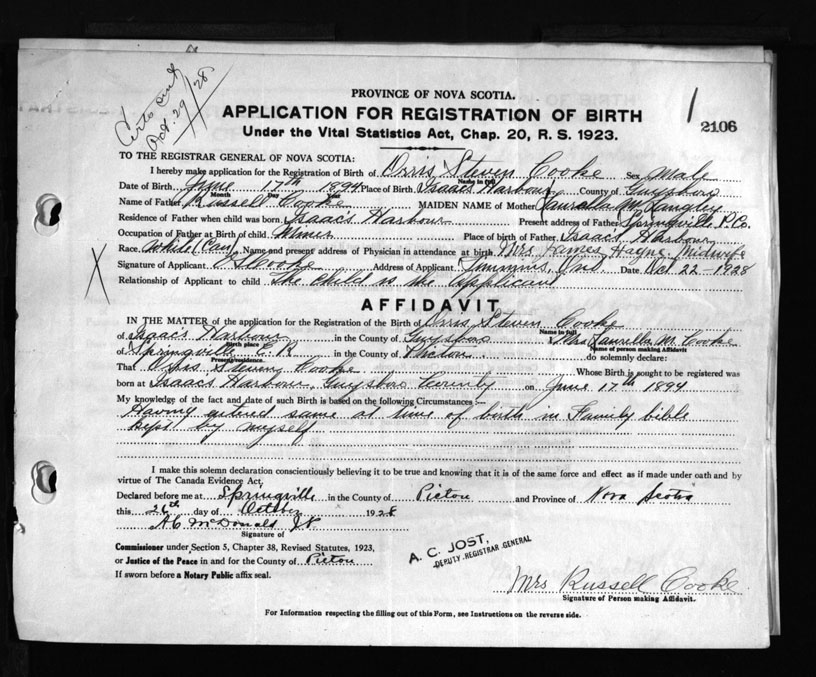 Certs sent
Oct. 29/28
PROVINCE OF NOVA SCOTIA.
1
APPLICATION FOR REGISTRATION OF BIRTH
2106
Under the Vital Statistics Act, Chap. 20, R. S. 1923.
TO THE REGISTRAR GENERAL OF NOVA SCOTIA:
I hereby make application for the Registration of Birth of Orris Steven Cooke Sex Male
Name in full
Date of Birth June 17th 1894 Place of Birth Isaacs Harbour County of Guysboro
Month Day Year
Name of Father Russell Cooke MAIDEN NAME of Mother Laurella M. Langley
Residence of Father when child was born Isaac's Harbour Present address of Father Springville P. Co.
Occupation of Father at Birth of child Miner Place of birth of Father Isaacs Harbour
Race White (Can) Name and present address of Physician in attendance at birth Mrs James Hayne Midwife
Signature of Applicant O S Cooke Address of Applicant Timmins, Ont Date Oct 22-1928
Relationship of Applicant to child The child is the Applicant
AFFIDAVIT
IN THE MATTER of the application for the Registration of the Birth of Orris Steven Cooke
Name in full
of Isaac's Harbour in the County of Guysboro Mrs Laurella M. Cooke
Birth place
Name of person making Affidavit
of Springville in the County of Pictou do solemnly declare:
Present residence
That Orris Steven Cooke Whose Birth is sought to be registered was
born at Isaacs Harbour, Guysboro County on June 17th 1894
My knowledge of the fact and date of such Birth is based on the following Circumstances:—
Having entered same at time of birth in Family bible
kept by myself
I make this solemn declaration conscientiously believing it to be true and knowing that it is of the same force and effect as if made under oath and by
virtue of The Canada Evidence Act.
Declared before me at Springville in the County of Pictou and Province of Nova Scotia
this 26th day of October 1928
A C McDonald J.P.
Signature of
Commissioner under Section 5, Chapter 38, Revised Statutes, 1923,
or Justice of the Peace in and for the County of Pictou
If sworn before a Notary Public affix seal.
A. C. JOST,
DEPUTY REGISTRAR GENERAL
Mrs Russell Cooke
Signature of Person making Affidavit.
For Information respecting the filling out of this Form, see Instructions on the reverse side.